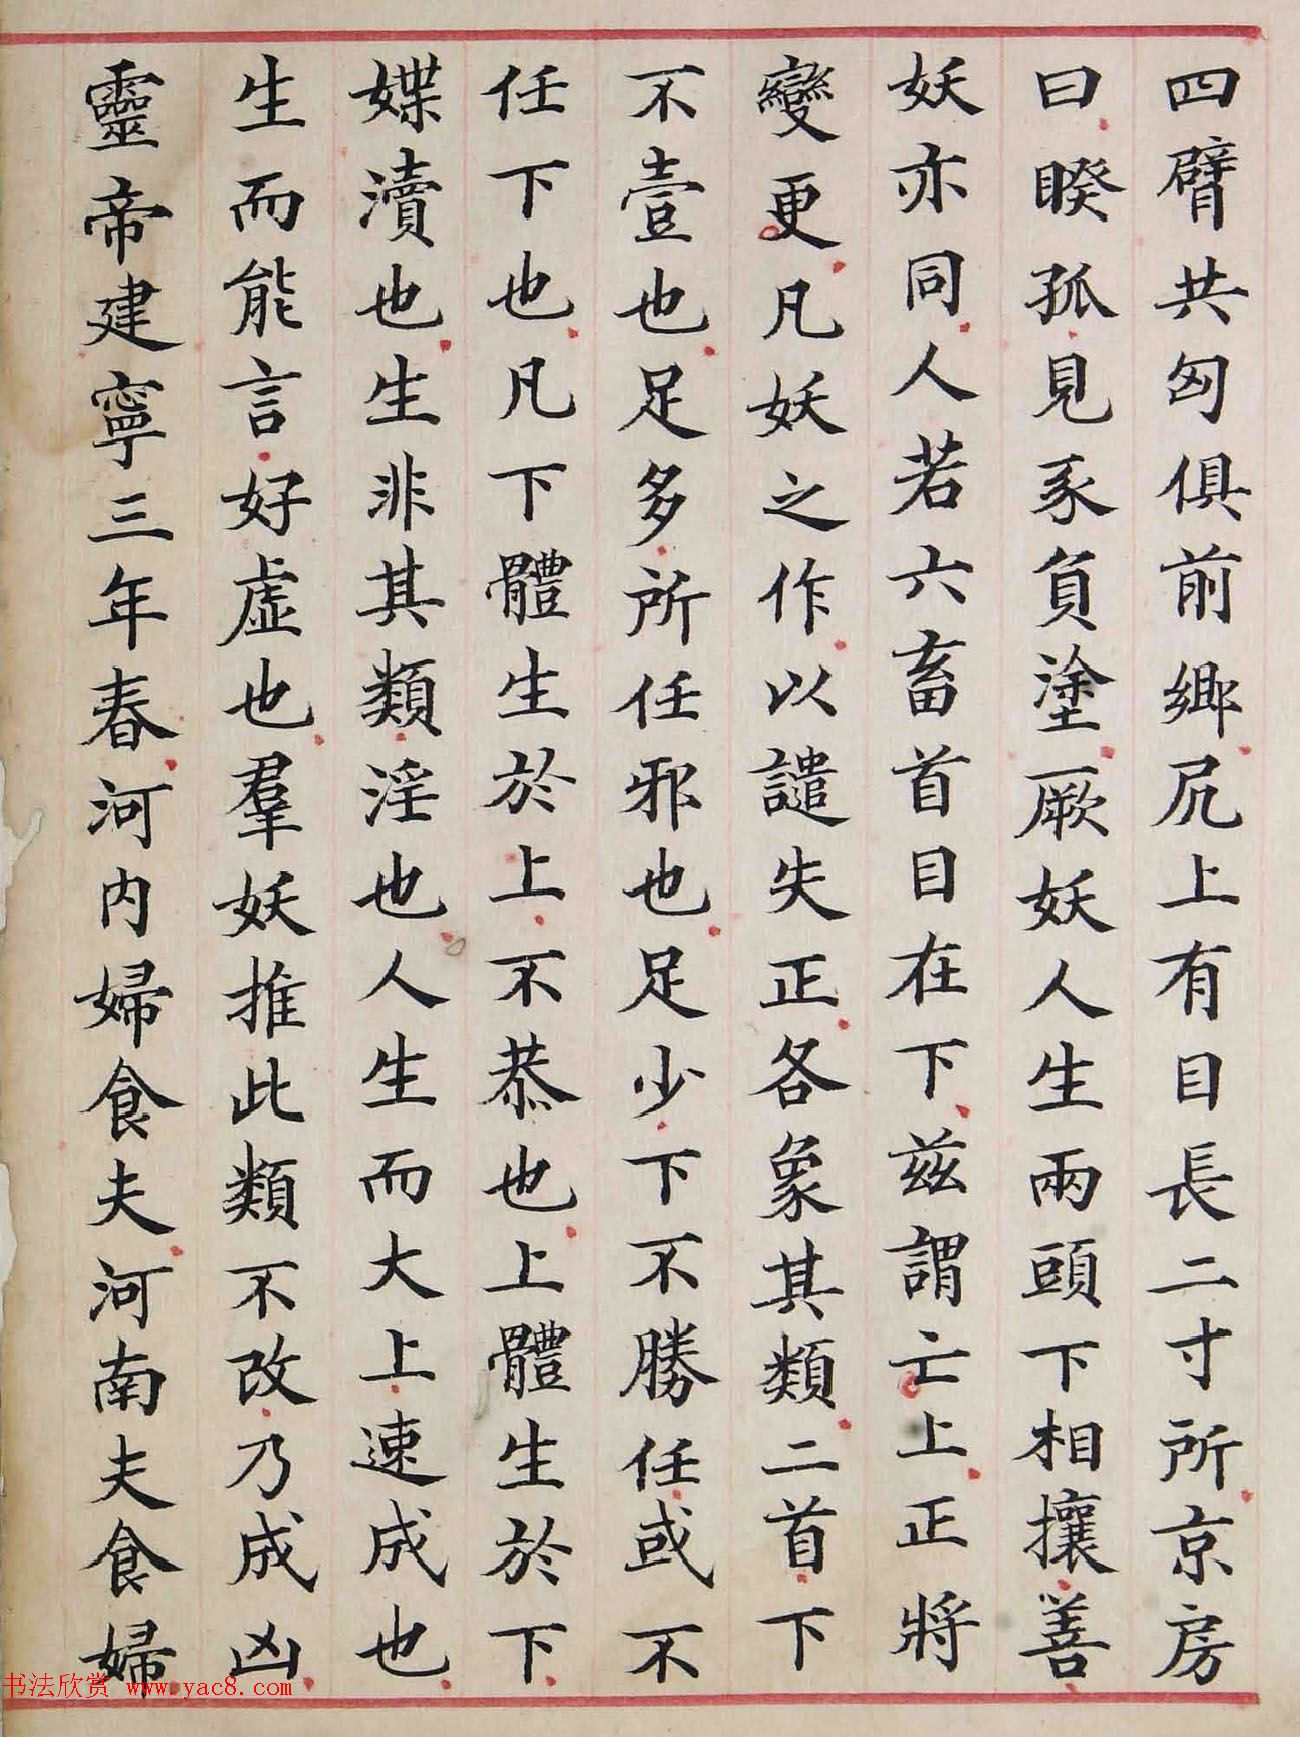 四臂共匈俱前鄉尻上有目長二寸所京房
曰睽孤見豕負塗厥妖人生兩頭下相攘善
妖亦同人若六畜首目在下兹謂亡上正將
變更凡妖之作以譴失正各象其類二首下
不壹也足多所任邪也足少下不勝任或不
任下也凡下體生於上不恭也上體生於下
媟瀆也生非其類淫也人生而大上速成也
生而能言好虛也羣妖推此類不改乃成凶
靈帝建寧三年春河内婦食夫河南夫食婦
书法欣赏 www.yac8.com